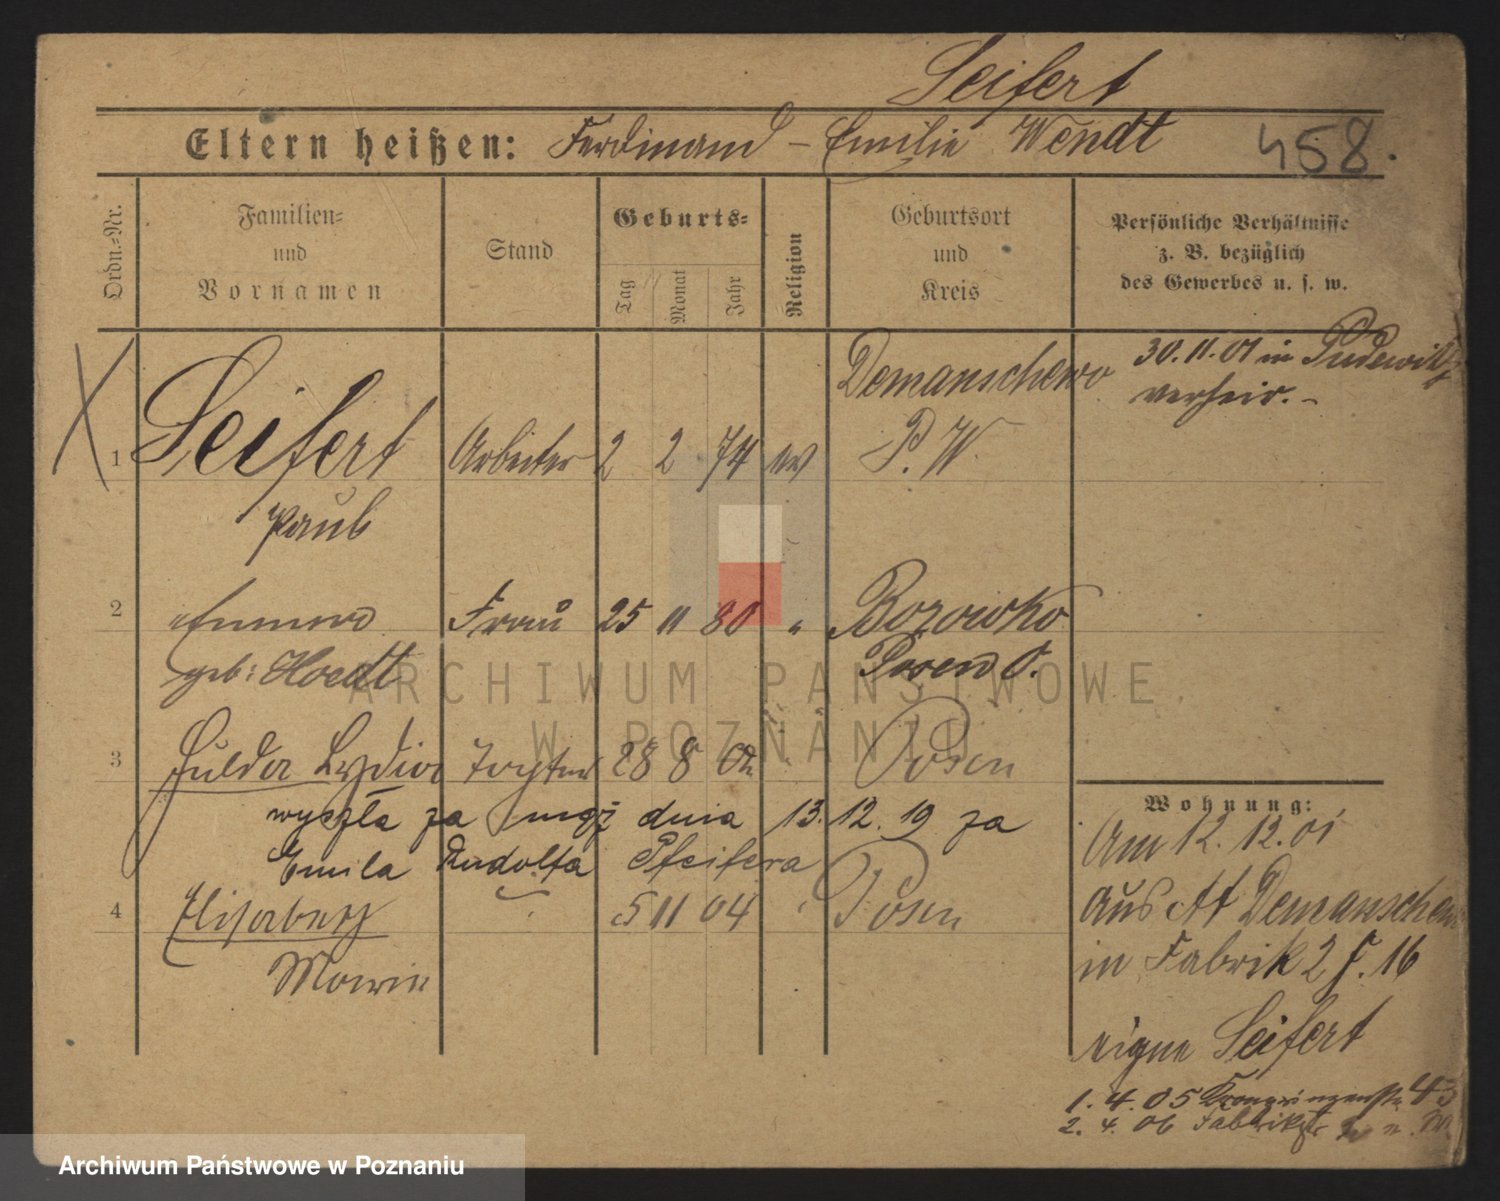 Seifert
Eltern heißen: Ferdinand – Emilie Wendt 458.
Ordn.-Nr.
Familien-
und
Vornamen
Stand
Geburts-
Tag
Monat
Jahr
Religion
Geburtsort
und
Kreis
Persönliche Verhältnisse
z. B. bezüglich
des Gewerbes u. s. w.
1 Seifert Arbeiter 2 2 74 ev Demanschewo
P. W.
Paul
30. 11. 01 in Pudewitz
verheir. –
2 Emma Frau 25 11 80 " Borowko
geb: Hoedt Posen O.
3 Hulda Lydia Tochter 28 8 02 " Posen
wyszła za mąż dnia 13. 12. 19 za
Emila Rudolfa Pfeifera
4 Elisabeth " 5 11 04 " Posen
Marie
Wohnung:
Am 12. 12. 01
aus Demanschewo
in Fabrik 16
eigne Seifert
1. 4. 05 Kronprinzenstr 43
2. 4. 06 Fabrikstr
ARCHIWUM PAŃSTWOWE
W POZNANIU
Archiwum Państwowe w Poznaniu